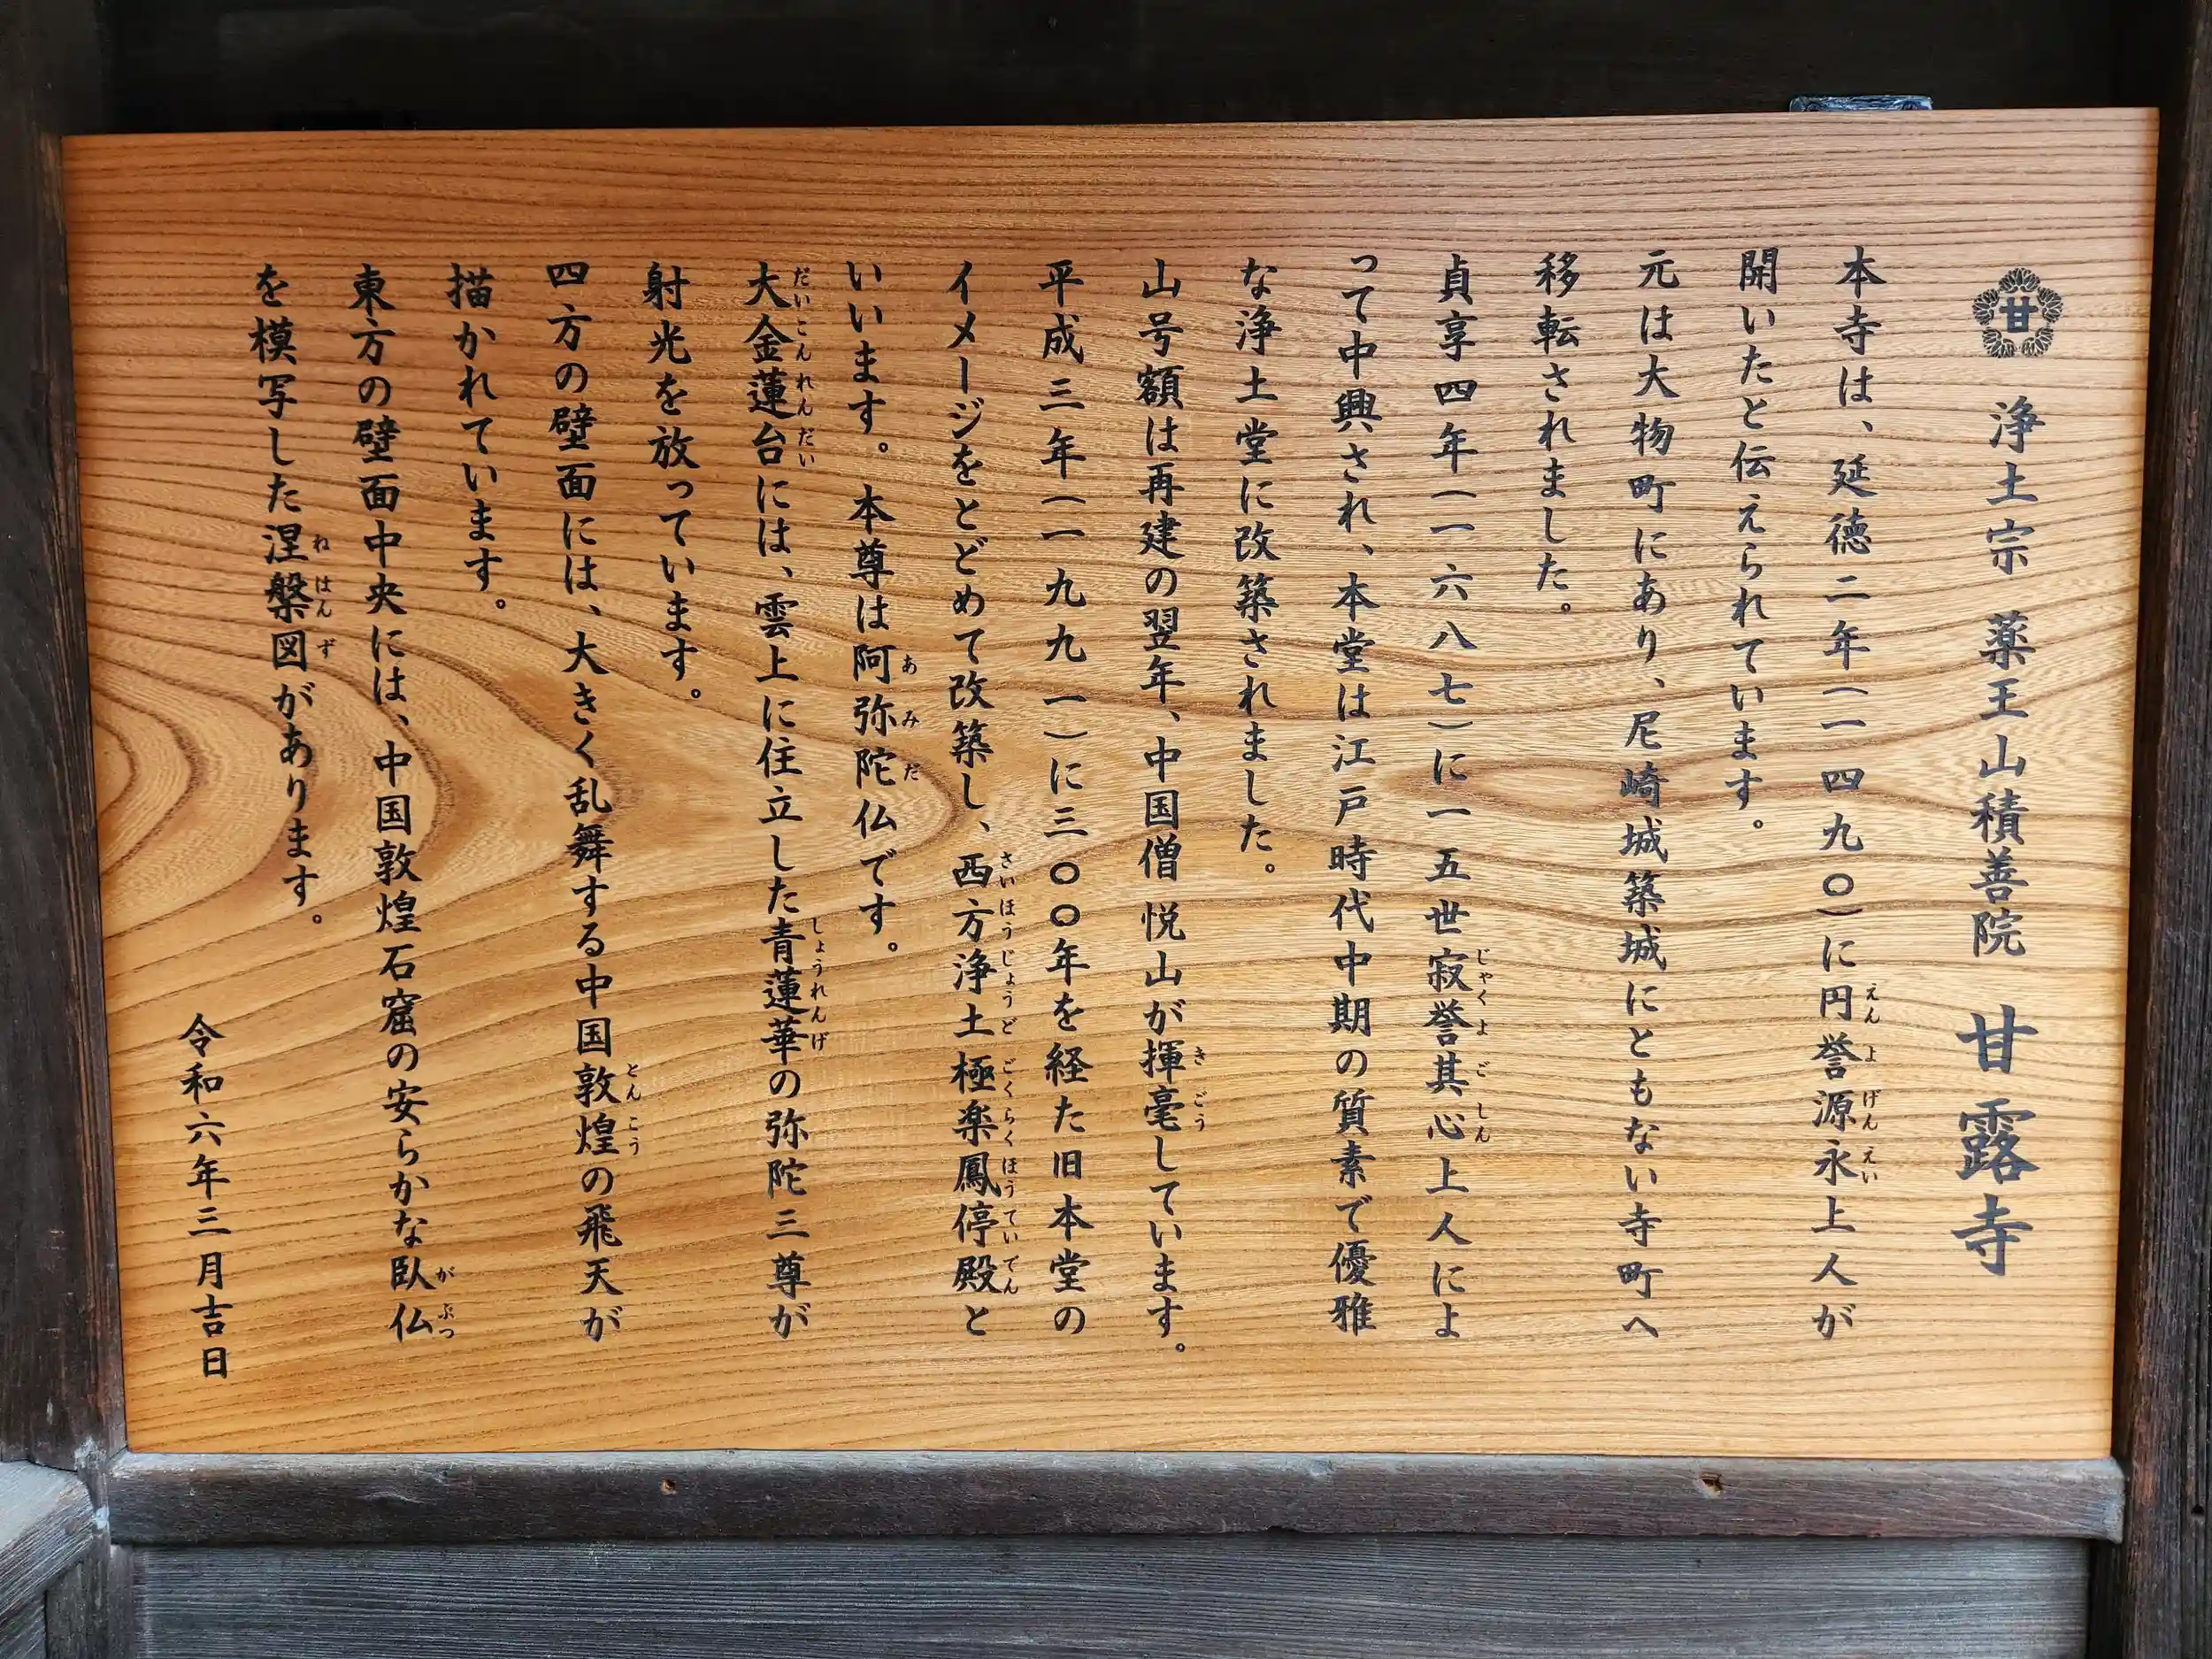 甘 浄土宗 薬王山積善院 甘露寺
本寺は、延徳二年(一四九〇)に円誉源永上人が
開いたと伝えられています。
元は大物町にあり、尼崎城築城にともない寺町へ
移転されました。
貞享四年(一六八七)に一五世寂誉其心上人によ
って中興され、本堂は江戸時代中期の質素で優雅
な浄土堂に改築されました。
山号額は再建の翌年、中国僧悦山が揮毫しています。
平成三年(一九九一)に三〇〇年を経た旧本堂の
イメージをとどめて改築し、西方浄土極楽鳳停殿と
いいます。本尊は阿弥陀仏です。
大金蓮台には、雲上に住立した青蓮華の弥陀三尊が
射光を放っています。
四方の壁面には、大きく乱舞する中国敦煌の飛天が
描かれています。
東方の壁面中央には、中国敦煌石窟の安らかな臥仏
を模写した涅槃図があります。
令和六年三月吉日